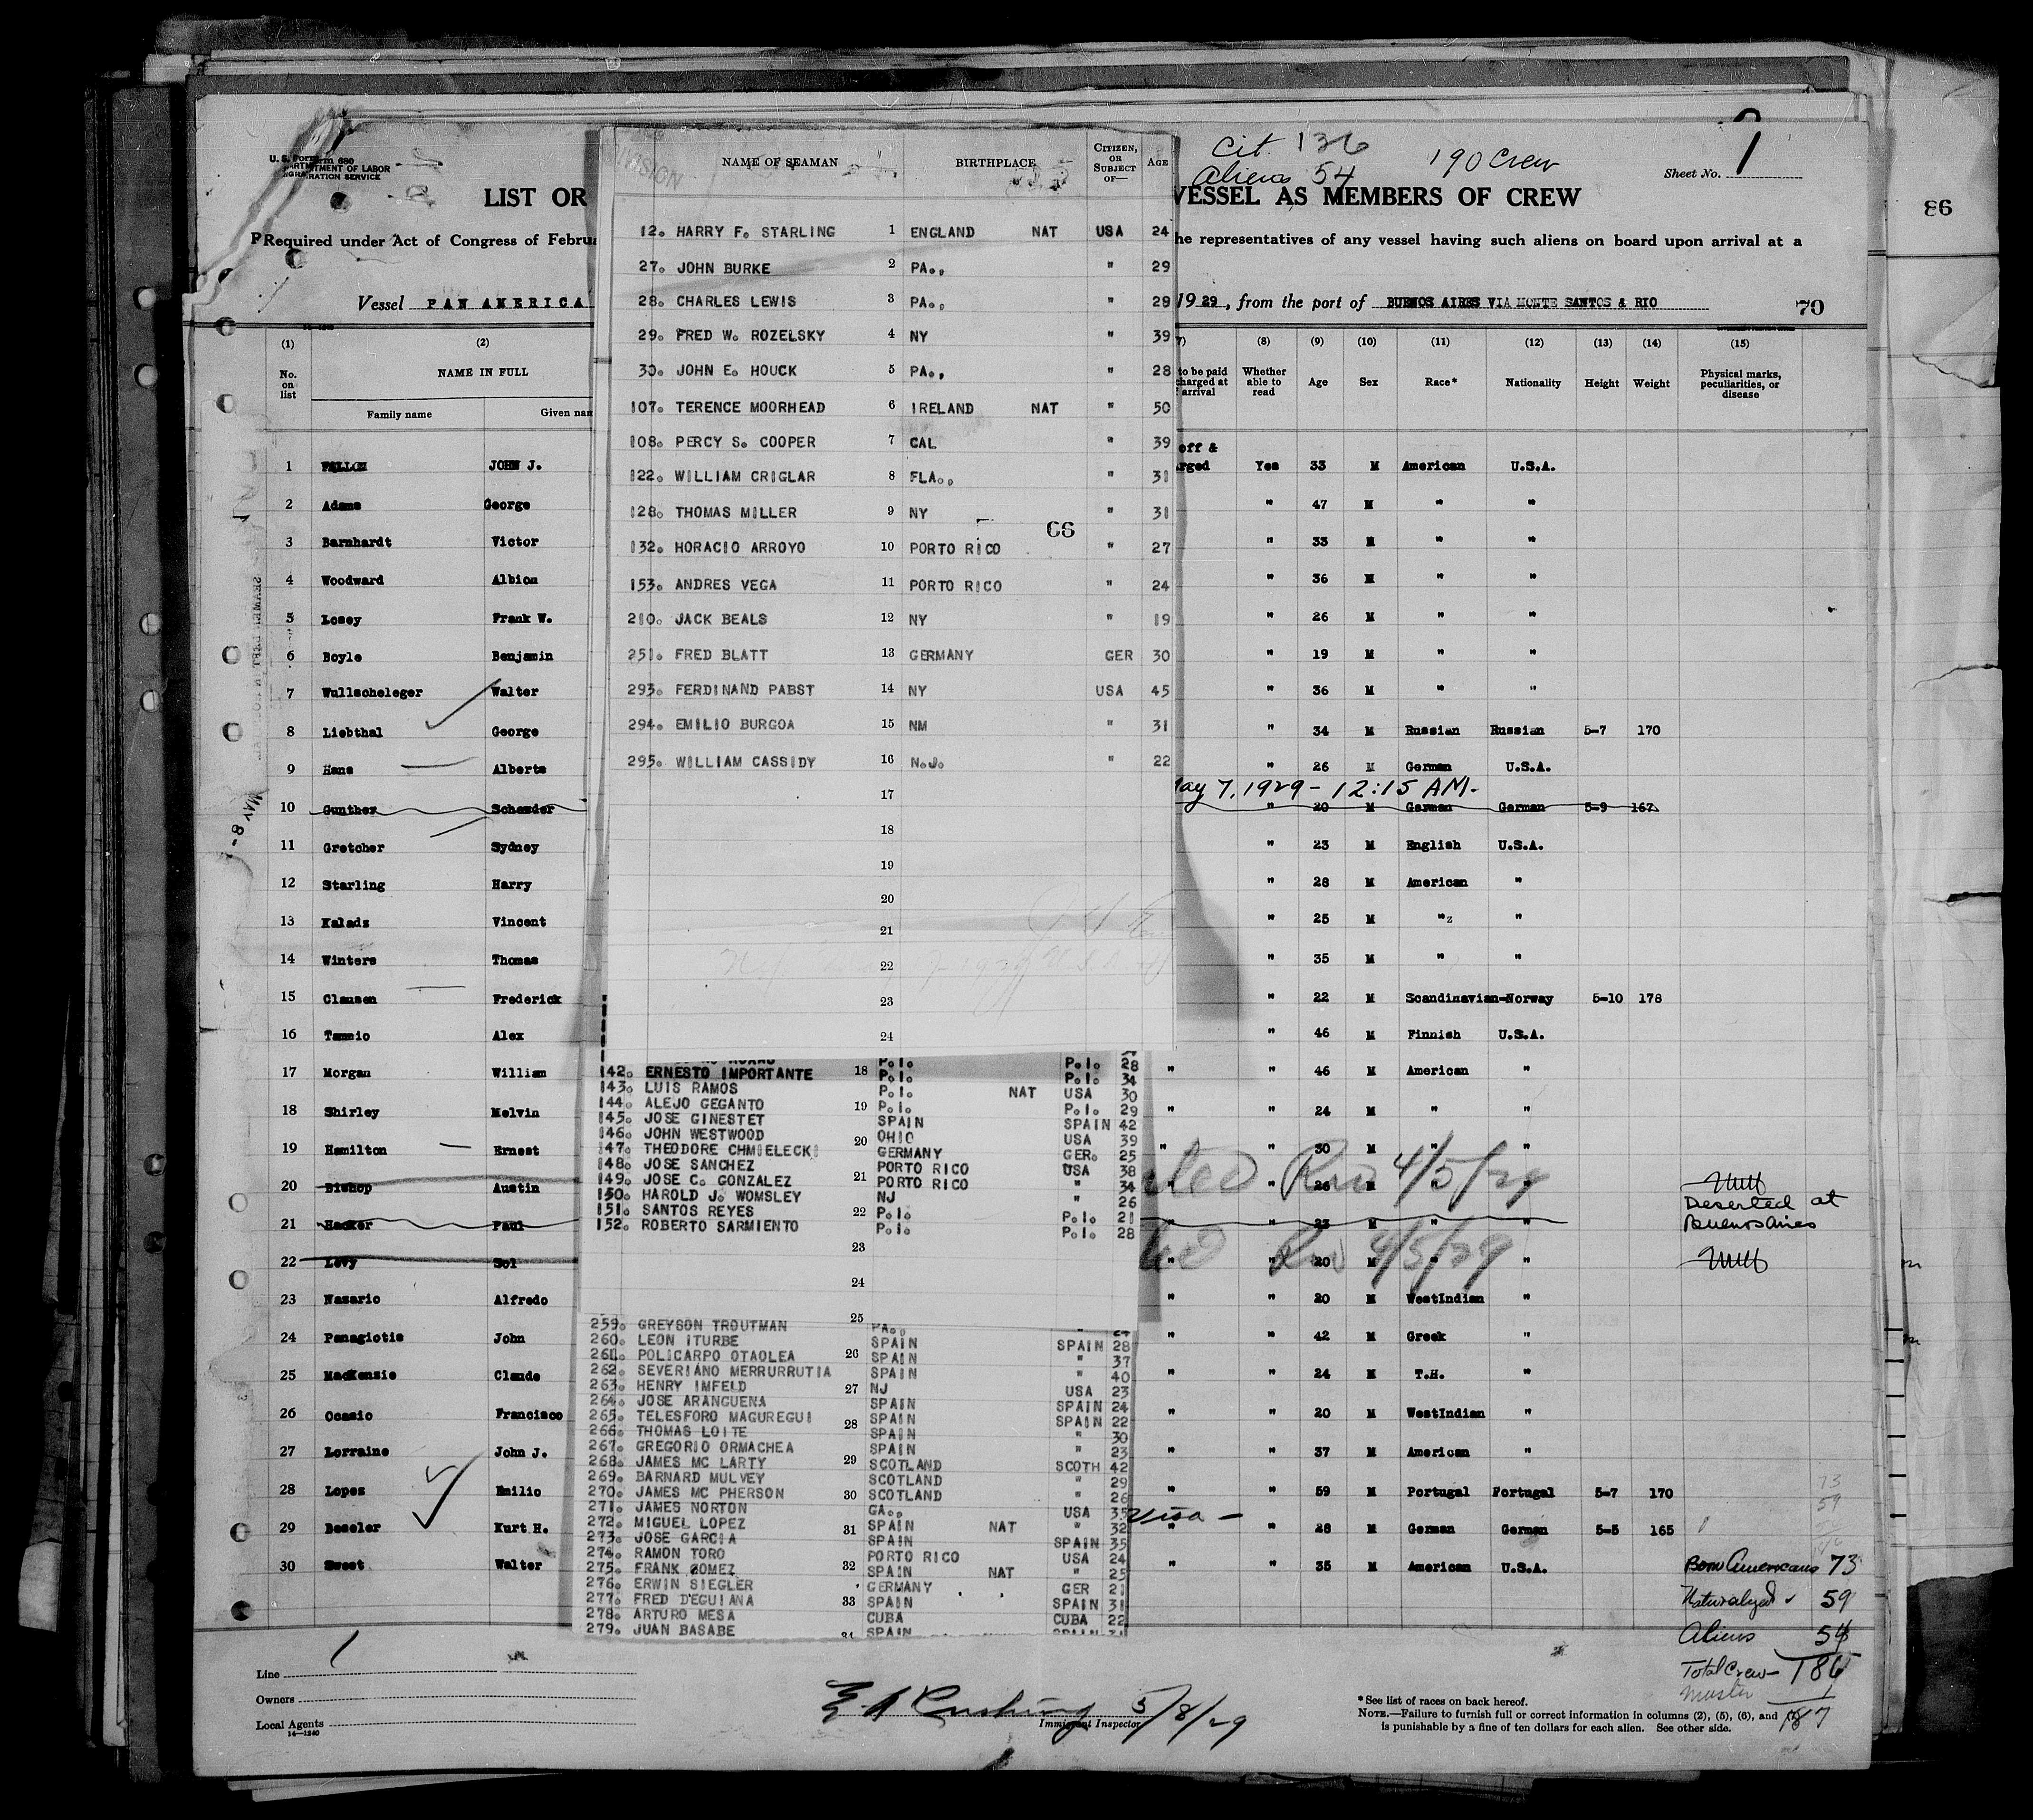 U. S. Form 680
DEPARTMENT OF LABOR
IMMIGRATION SERVICE
LIST OR
VESSEL AS MEMBERS OF CREW
Cit. 136
Aliens 54
190 Crew
Sheet No. 1
Required under Act of Congress of Febru
he representatives of any vessel having such aliens on board upon arrival at a
86
Vessel PAN AMERICA
19 29, from the port of BUENOS AIRES VIA MONTE SANTOS & RIO
70
(1) (2) (8) (9) (10) (11) (12) (13) (14) (15)
No. on list NAME IN FULL to be paid charged at arrival Whether able to read Age Sex Race* Nationality Height Weight Physical marks, peculiarities, or disease
Family name Given nam
off &
1 FALLON JOHN J. rged Yes 33 M American U.S.A.
2 Adams George " 47 M " "
3 Barnhardt Victor " 33 M " "
4 Woodward Albion " 36 M " "
5 Losey Frank W. " 26 M " "
6 Boyle Benjamin " 19 M " "
7 Wullscheleger Walter " 36 M " "
8 Liebthal George " 34 M Russian Russian 5-7 170
9 Hans Alberts " 26 M German U.S.A.
May 7, 1929 - 12:15 AM.
10 Gunther Schawder " 20 M German German 5-9 167
11 Gretcher Sydney " 23 M English U.S.A.
12 Starling Harry " 28 M American "
13 Kalads Vincent " 25 M "z "
14 Winters Thomas " 35 M " "
15 Clausen Frederick " 22 M Scandinavian-Norway 5-10 178
16 Tammio Alex " 46 M Finnish U.S.A.
17 Morgan William " " 46 M American "
18 Shirley Melvin " " 24 M " "
19 Hamilton Ernest " " 30 M " "
20 Bishop Austin " 26 M " "
4/5/29
21 Hacker Paul " 23 M " " Deserted at
Buenos Aires
22 Levy Sol " 20 M " "
4/5/29
23 Nazario Alfredo " " 20 M WestIndian "
24 Panagiotis John " " 42 M Greek "
25 MacKenzie Claude " " 24 M T.H. "
26 Ocasio Francisco " " 20 M WestIndian "
27 Lorraine John J. " " 37 M American "
28 Lopez Emilio " " 59 M Portugal Portugal 5-7 170
29 Beseler Kurt H. Visa - " " 28 M German German 5-5 165
30 Sweet Walter " " 35 M American U.S.A.
Born Americans 73
Naturalized 59
Aliens 54
Total Crew - 186
Master 1
187
MAY 8-
NAME OF SEAMAN BIRTHPLACE CITIZEN, OR SUBJECT OF— AGE
DIVISION
12. HARRY F. STARLING 1 ENGLAND NAT USA 24
27. JOHN BURKE 2 PA., " 29
28. CHARLES LEWIS 3 PA., " 29
29. FRED W. ROZELSKY 4 NY " 39
30. JOHN E. HOUCK 5 PA., " 28
107. TERENCE MOORHEAD 6 IRELAND NAT " 50
108. PERCY S. COOPER 7 CAL " 39
122. WILLIAM CRIGLAR 8 FLA., " 31
128. THOMAS MILLER 9 NY " 31
66
132. HORACIO ARROYO 10 PORTO RICO " 27
153. ANDRES VEGA 11 PORTO RICO " 24
210. JACK BEALS 12 NY " 19
251. FRED BLATT 13 GERMANY GER 30
293. FERDINAND PABST 14 NY USA 45
294. EMILIO BURGOA 15 NM " 31
295. WILLIAM CASSIDY 16 N.J. " 22
17
18
19
20
21
22
23
24
P.I. P.I. 28
142. ERNESTO IMPORTANTE 18 P.I. P.I. 34
143. LUIS RAMOS P.I. NAT USA 30
144. ALEJO GEGANTO 19 P.I. P.I. 29
145. JOSE GINESTET SPAIN SPAIN 42
146. JOHN WESTWOOD 20 OHIO USA 39
147. THEODORE CHMIELECKI GERMANY GER. 25
148. JOSE SANCHEZ PORTO RICO USA 38
149. JOSE C. GONZALEZ 21 PORTO RICO " 34
150. HAROLD J. WOMSLEY NJ " 26
151. SANTOS REYES 22 P.I. P.I. 21
152. ROBERTO SARMIENTO P.I. P.I. 28
23
24
25
259. GREYSON TROUTMAN PA., " 24
260. LEON ITURBE SPAIN SPAIN 28
261. POLICARPO OTAOLEA 26 SPAIN " 37
262. SEVERIANO MERRURRUTIA SPAIN " 40
263. HENRY IMFELD 27 NJ USA 23
264. JOSE ARANGUENA SPAIN SPAIN 24
265. TELESFORO MAGUREGUI 28 SPAIN SPAIN 22
266. THOMAS LOITE SPAIN " 30
267. GREGORIO ORMACHEA SPAIN " 23
268. JAMES MC LARTY 29 SCOTLAND SCOTH 42
269. BARNARD MULVEY SCOTLAND " 29
270. JAMES MC PHERSON 30 SCOTLAND " 26
271. JAMES NORTON GA., USA 35
272. MIGUEL LOPEZ 31 SPAIN NAT " 32
273. JOSE GARCIA SPAIN SPAIN 35
274. RAMON TORO PORTO RICO USA 24
275. FRANK GOMEZ 32 SPAIN NAT " 25
276. ERWIN SIEGLER GERMANY GER 21
277. FRED D'EGUIANA 33 SPAIN SPAIN 31
278. ARTURO MESA CUBA CUBA 22
279. JUAN BASABE 34 SPAIN SPAIN 31
Line
Owners
Local Agents
14—1240
E A Cushing 5/8/29
Immigrant Inspector
*See list of races on back hereof.
NOTE.—Failure to furnish full or correct information in columns (2), (5), (6), and (7)
is punishable by a fine of ten dollars for each alien. See other side.